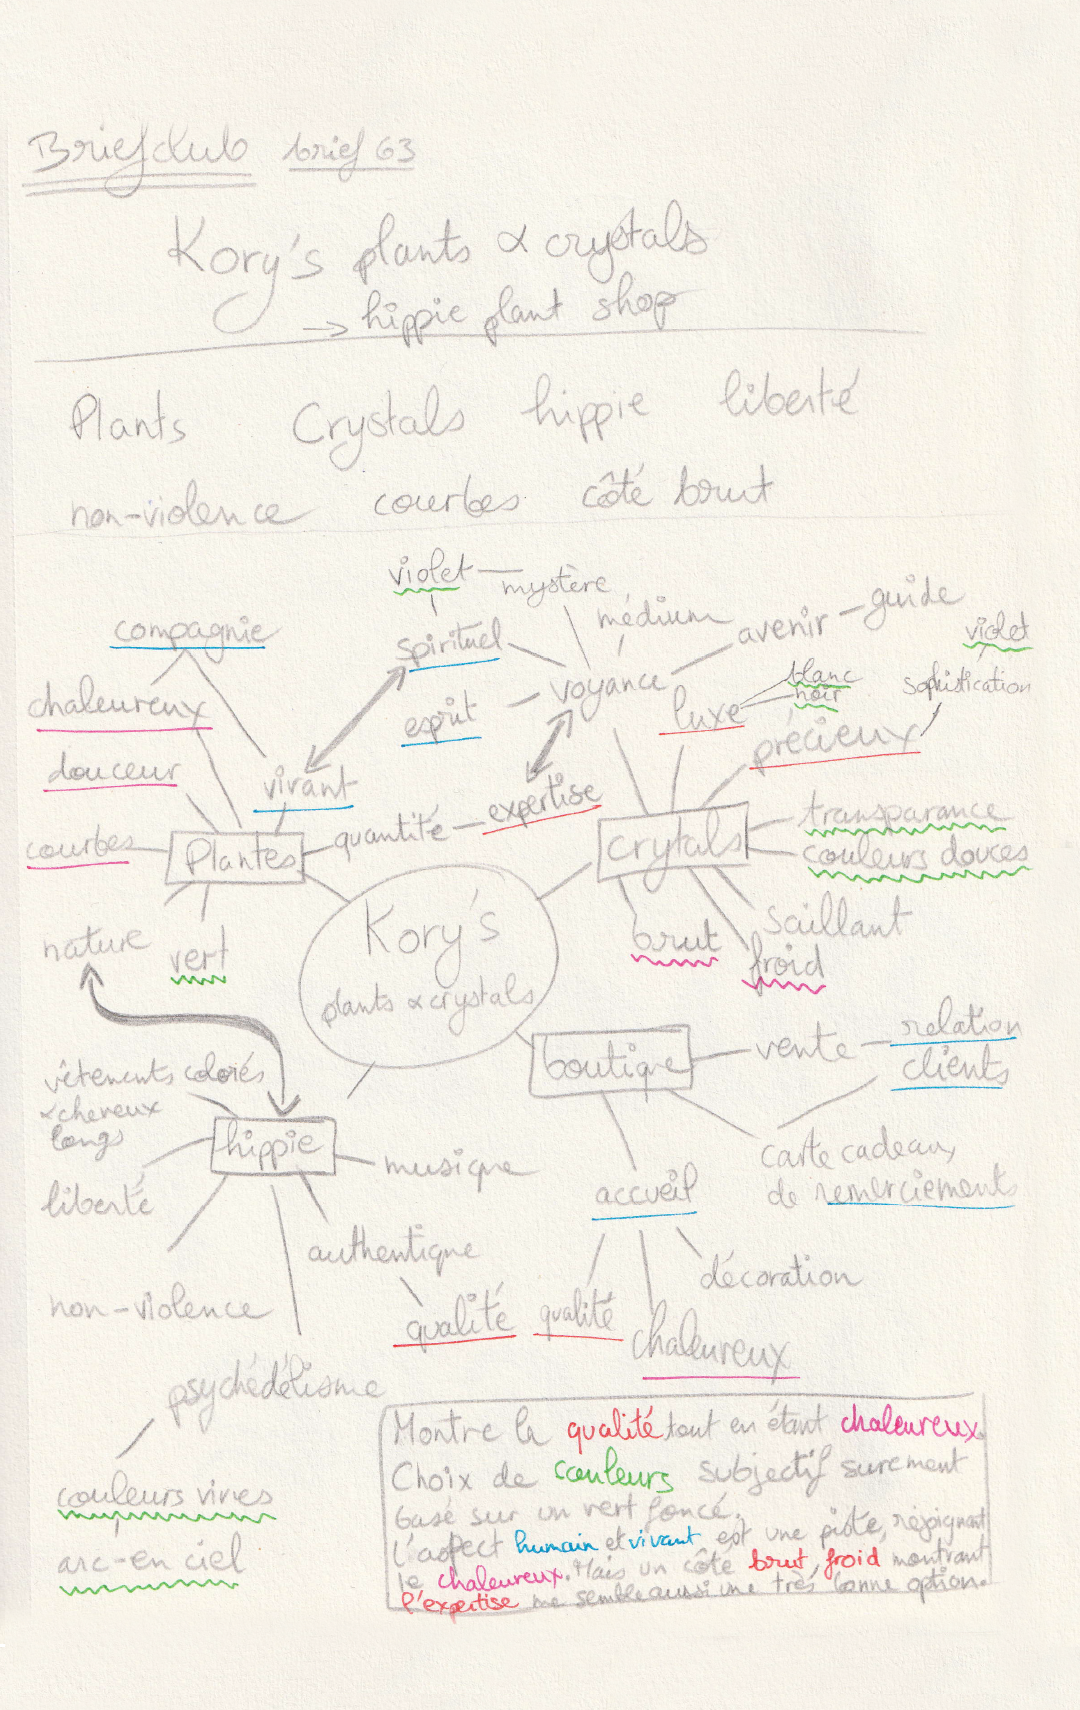 Briefclub brief 63
Kory's plants & crystals
→ hippie plant shop
Plants Crystals hippie liberté
non-violence courbes côté brut
violet mystère
médium
avenir guide
violet
compagnie
spirituel
voyance
blanc
noir
sophistication
chaleureux
esprit
luxe
précieux
douceur
vivant
expertise
transparance
quantité
courbes
Plantes
crytals
couleurs douces
Kory's
plants & crystals
saillant
brut
froid
nature
vert
relation
clients
vente
boutique
vêtements colorés
& cheveux
longs
hippie
musique
carte cadeaux,
de remerciements
accueil
liberté
authentique
décoration
non-violence
qualité
qualité
chaleureux
psychédélisme
couleurs vives
arc-en ciel
Montre la qualité tout en étant chaleureux.
Choix de couleurs subjectif surement
basé sur un vert foncé.
L'aspect humain et vivant est une piste, rejoignant
le chaleureux. Mais un côte brut, froid montrant
l'expertise me semble aussi une très bonne option.